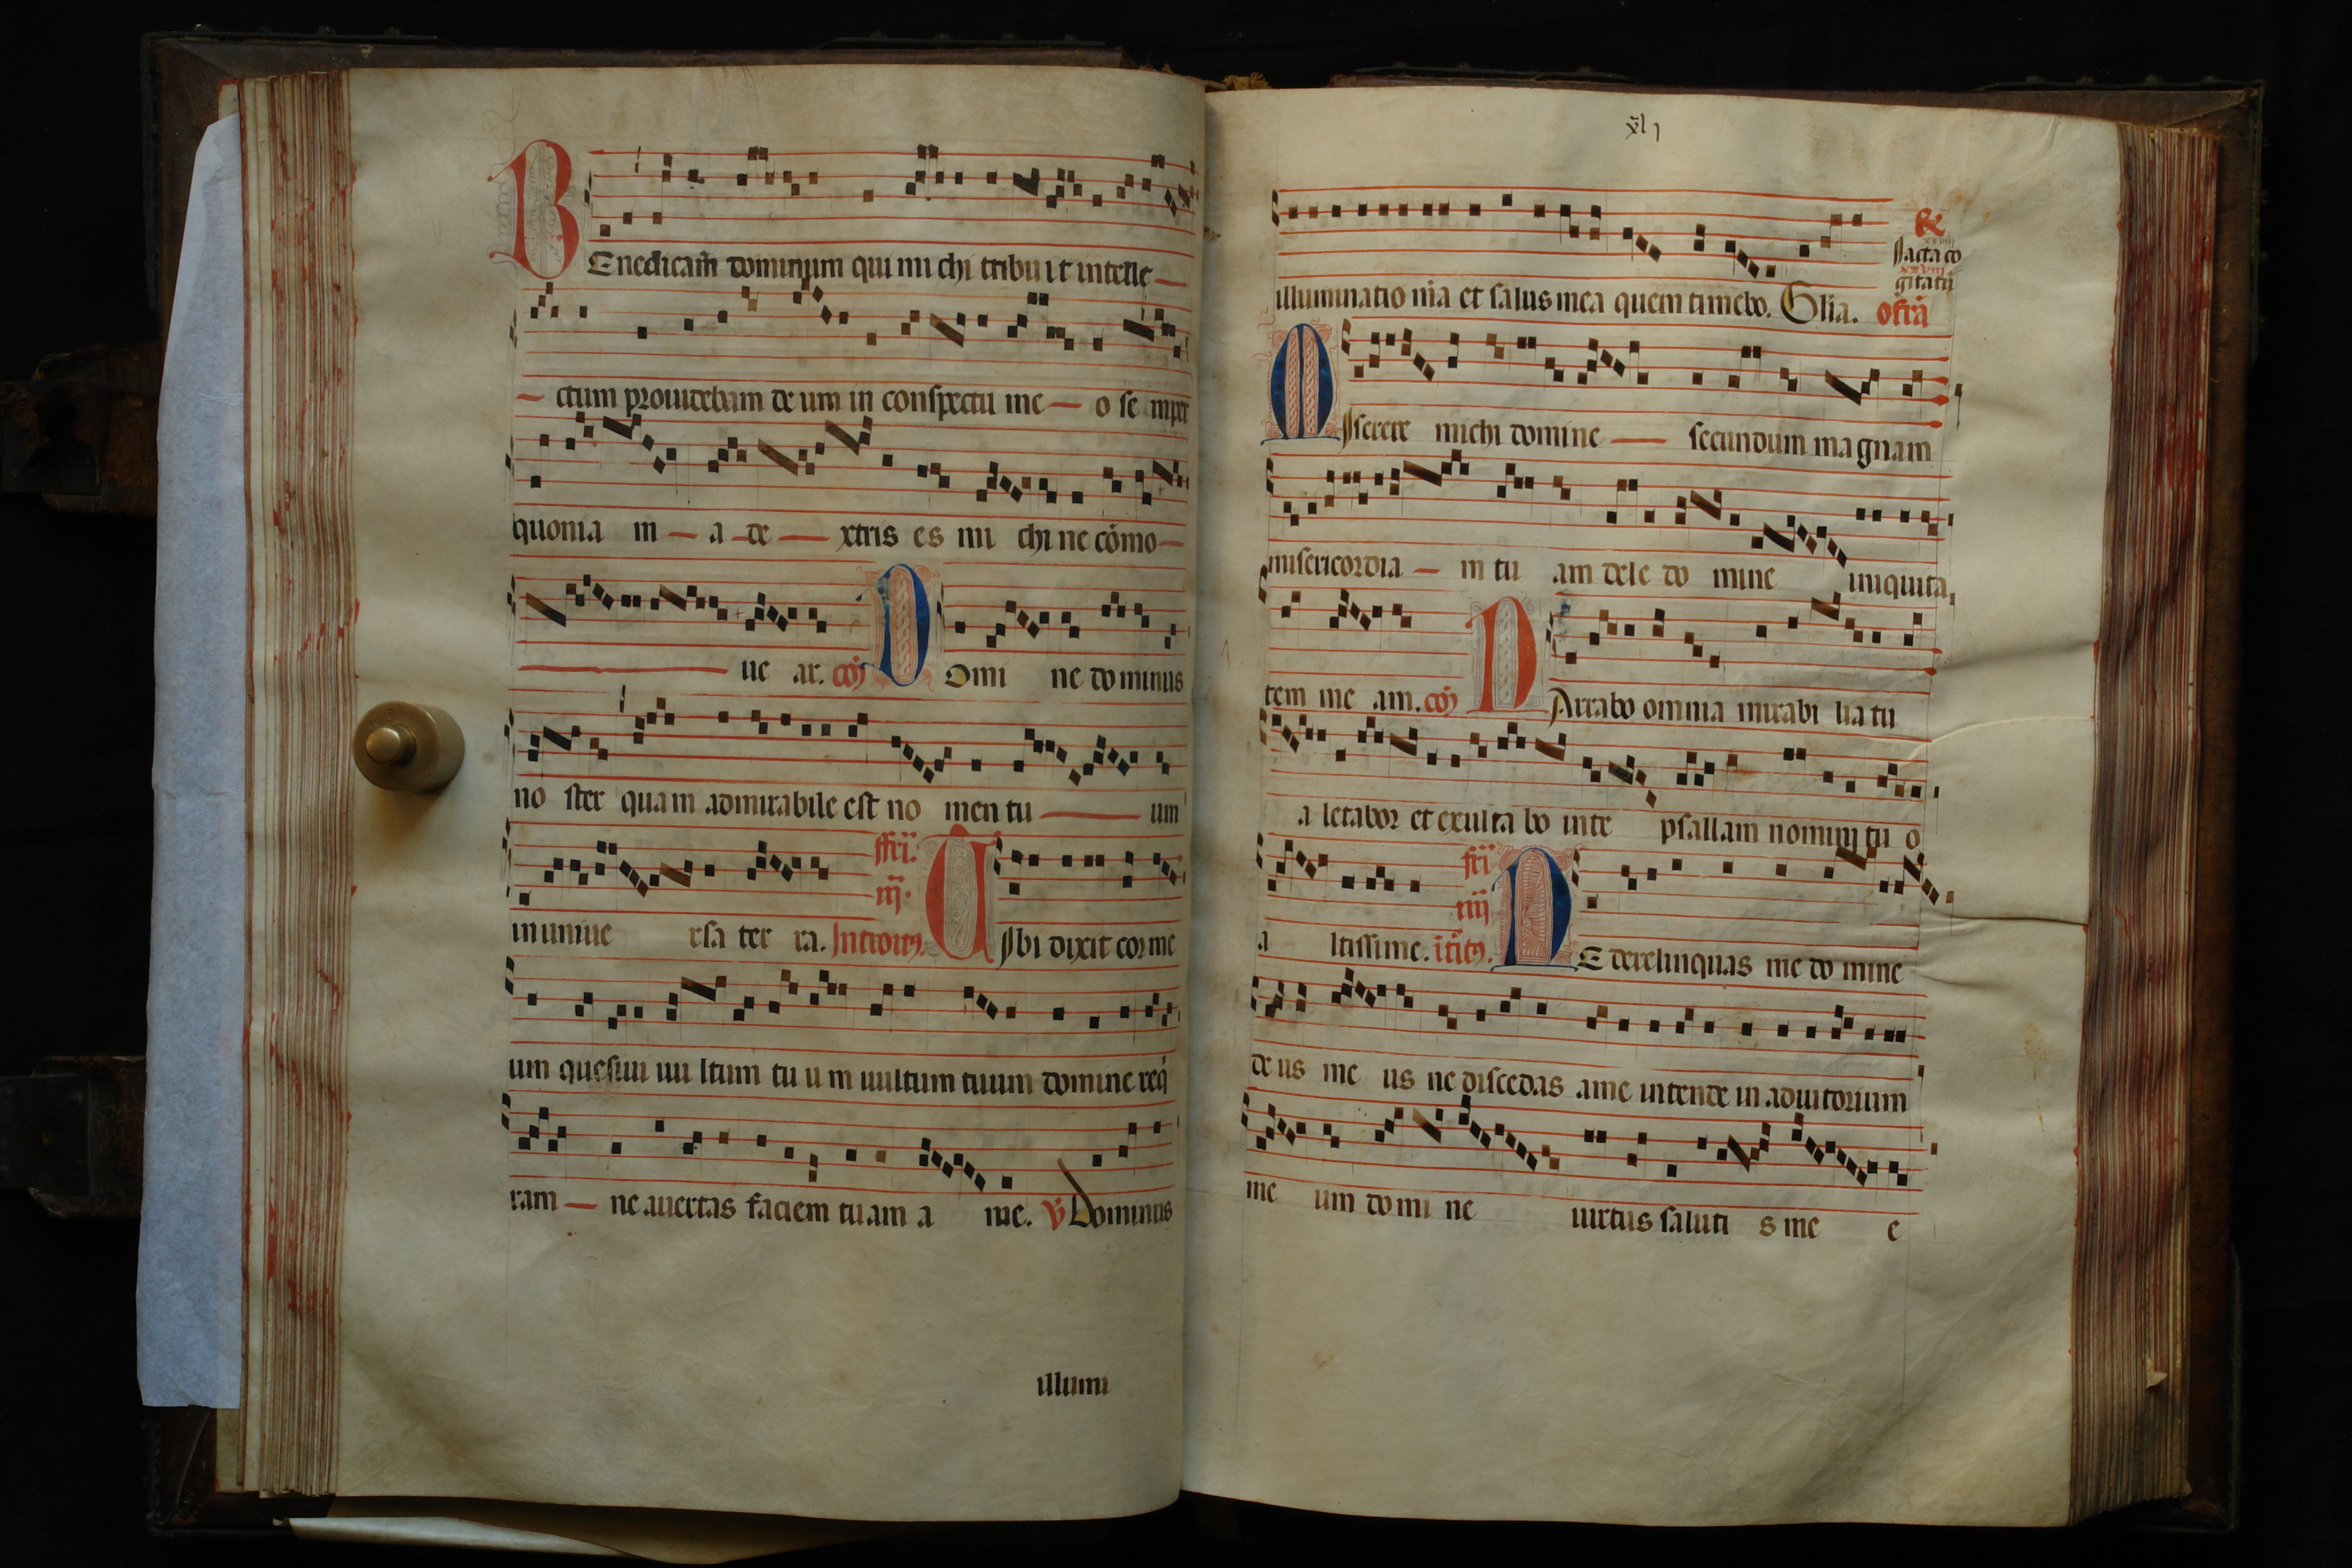 BEnedicam̄ dominum qui mi chi tribu it intelle
ctum prouidebam de um in conspectu me o se mper
quonia m a de xtris es mi chi ne cōmo
ue ar. cōj DOmi ne dominus
no ster quam admirabile est no men tu um
fr̄i. iij.
in uniue rsa ter ra. Introitus. TIbi dixit cor me
um quesiui uu ltum tu u m uultum tuum domine req̇
ram ne auertas faciem tuam a me. v̄ Dominus
illumi
xlj
illuminatio m̄a et salus mea quem timebo. Glīa. ofr̄a
R
Iacta co
xxviij
gitatū
MIserere michi domine secundum magnam
misericordia m tu am dele do mine iniquita
tem me am. cōj NArrabo omnia mirabi lia tu
a letabor et exulta bo in te psallam nomini tu o
fr̄i iiij
a ltissime. ītitus. NE derelinquas me do mine
de us me us ne discedas a me intende in adiutorium
me um do mi ne uirtus saluti s me e